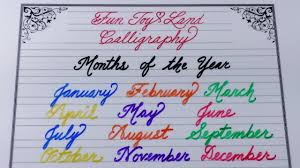 Fun Toy & Land
Calligraphy
Months of the Year
January February March
April May June
July August September
October November December